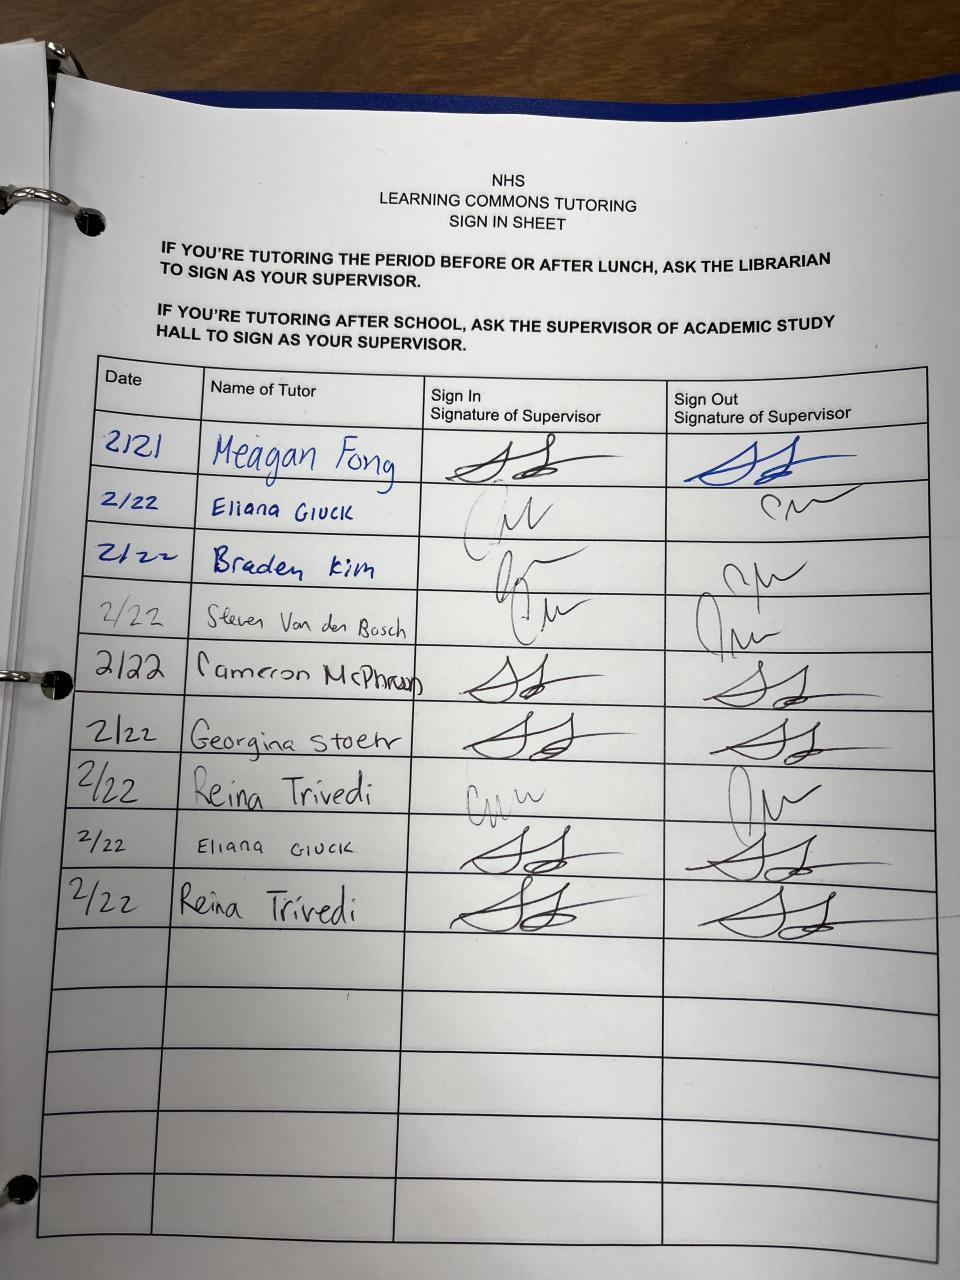 NHS
LEARNING COMMONS TUTORING
SIGN IN SHEET
IF YOU'RE TUTORING THE PERIOD BEFORE OR AFTER LUNCH, ASK THE LIBRARIAN
TO SIGN AS YOUR SUPERVISOR.
IF YOU'RE TUTORING AFTER SCHOOL, ASK THE SUPERVISOR OF ACADEMIC STUDY
HALL TO SIGN AS YOUR SUPERVISOR.
Date Name of Tutor Sign In Sign Out
Signature of Supervisor Signature of Supervisor
2/21 Meagan Fong
2/22 Eliana Gluck
2/22 Braden Kim
2/22 Steven Van den Bosch
2/22 Cameron
2/22 Georgina Stoehr
2/22 Reina Trivedi
2/22 Eliana Gluck
2/22 Reina Trivedi